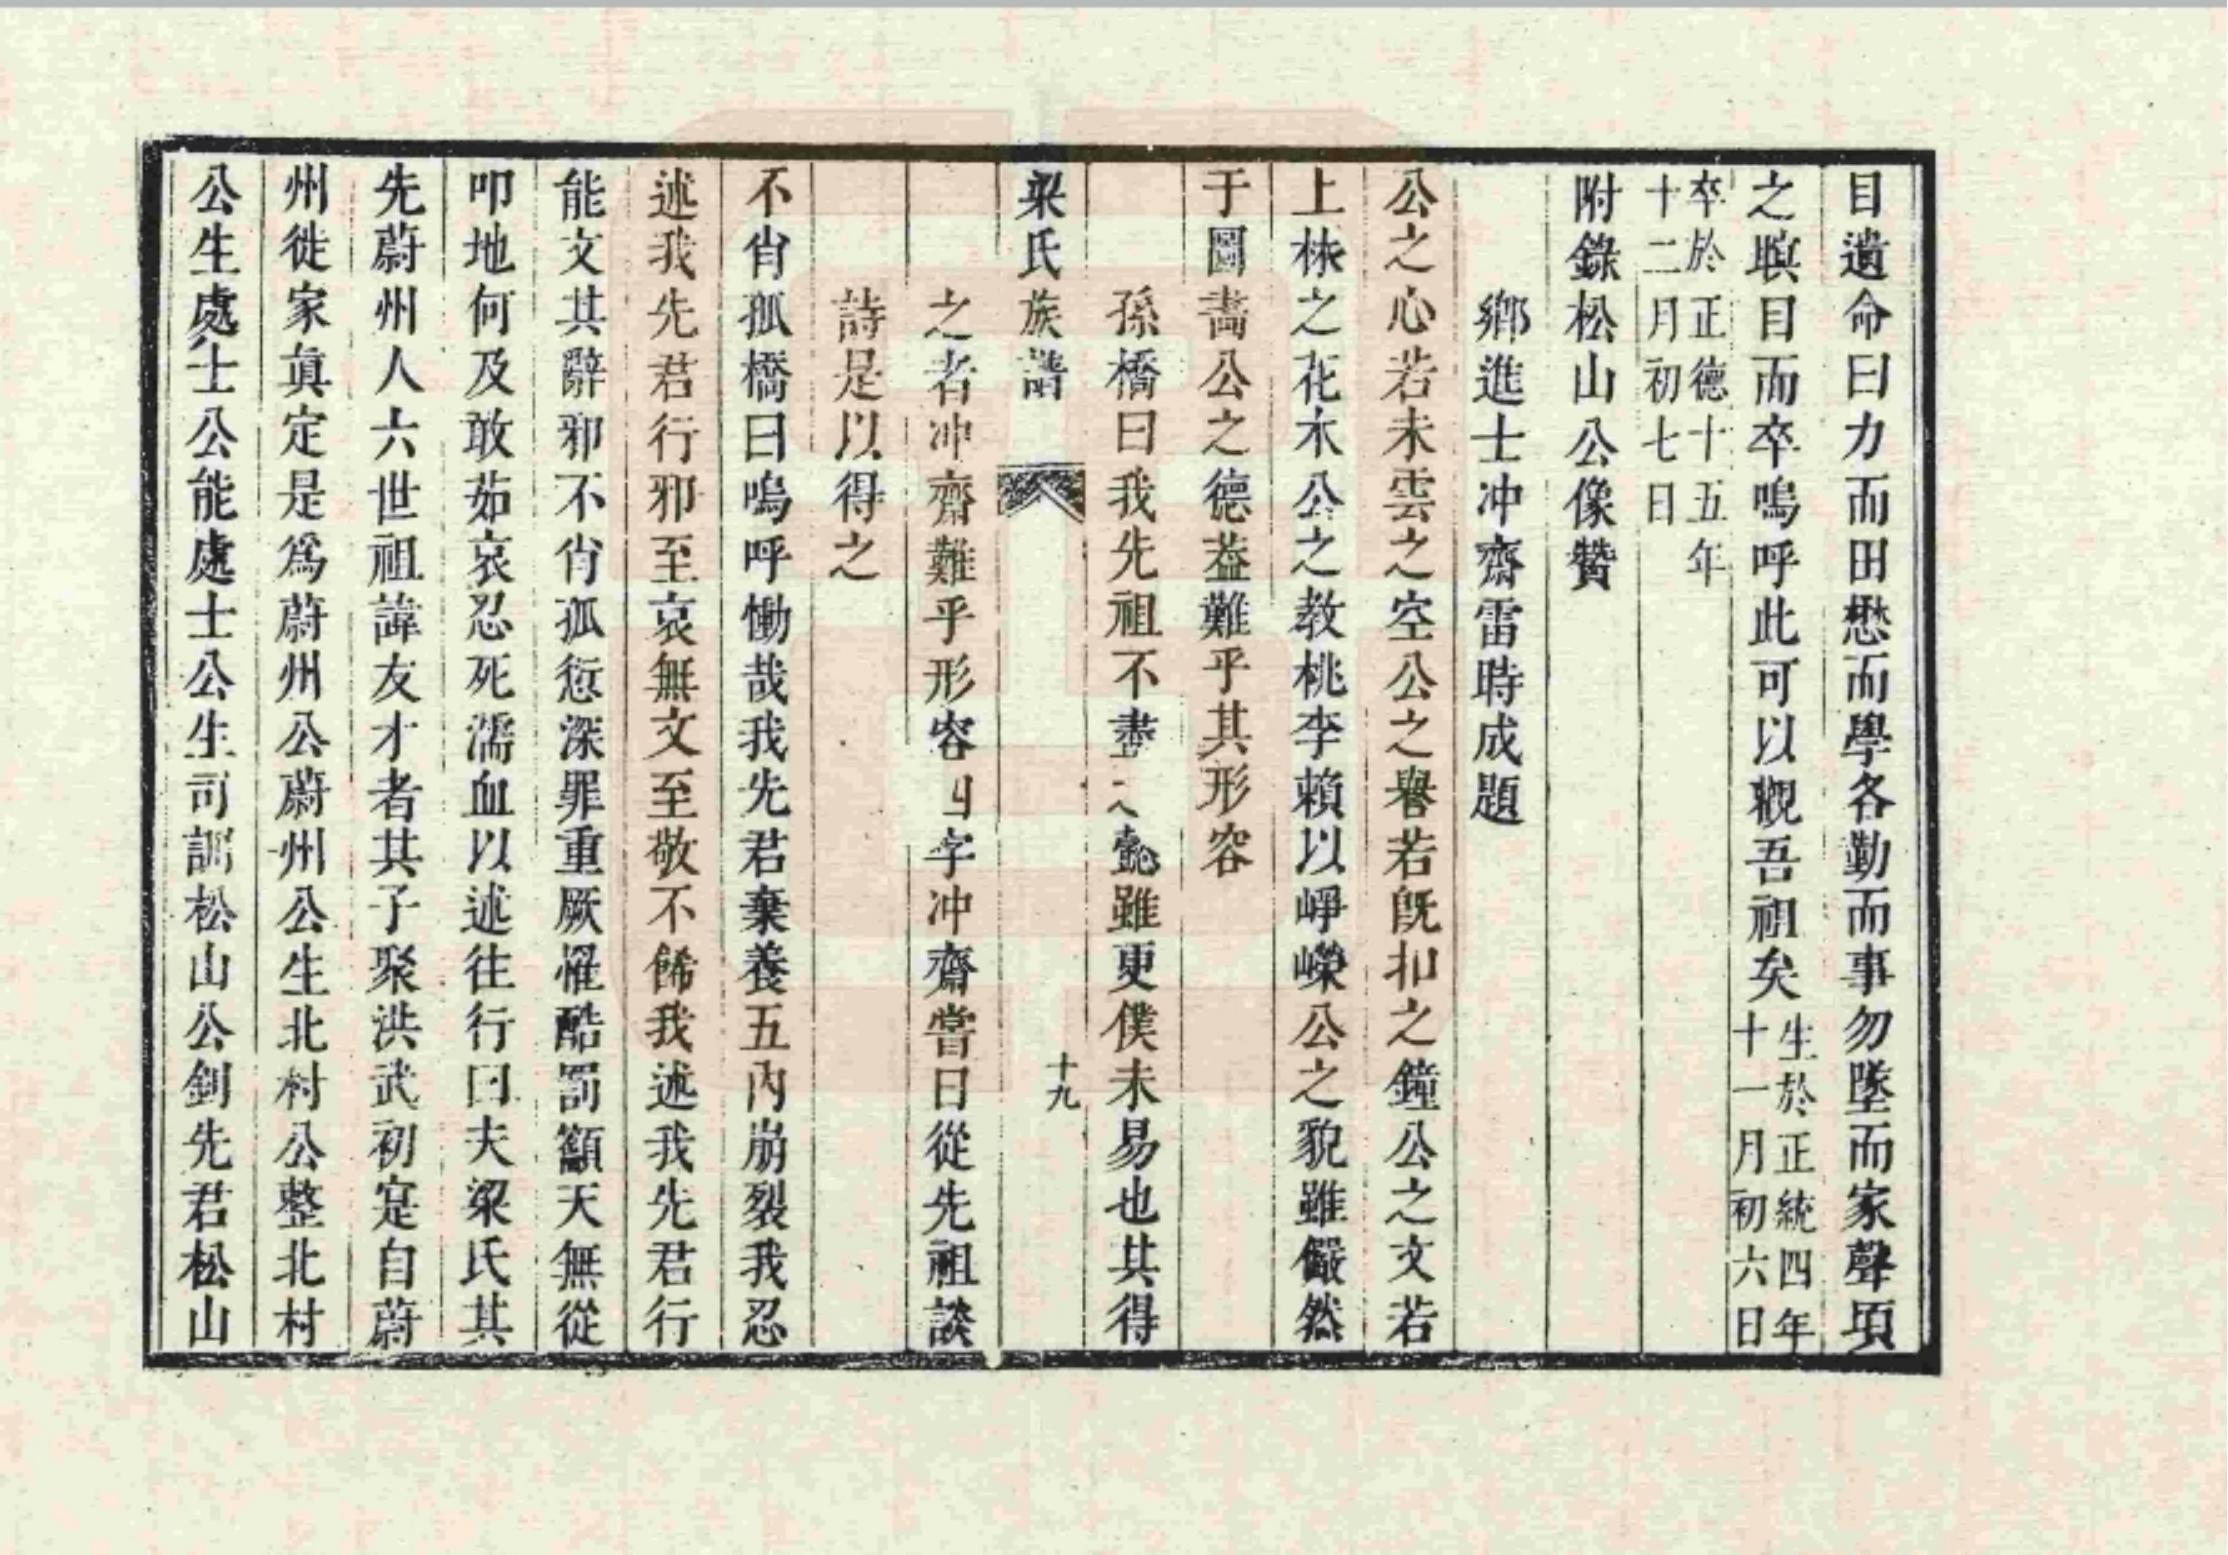 目遺命曰力而田懋而學各勤而事勿墜而家聲項
之瞑目而卒嗚呼此可以觀吾祖矣
生於正統四年
十一月初六日
卒於正德十五年
十二月初七日
附錄松山公像贊
鄉進士冲齋雷時成題
公之心若未雲之空公之譽若旣扣之鐘公之文若
上林之花木公之教桃李賴以崢嶸公之貌雖儼然
于圖畵公之德葢難乎其形容
孫橋曰我先祖不盡之懿雖更僕未易也其得
梁氏族譜
十九
之者冲齋難乎形容四字冲齋嘗曰從先祖談
詩是以得之
不肖孤橋曰嗚呼慟哉我先君棄養五內崩裂我忍
述我先君行邪至哀無文至敬不餙我述我先君行
能文其辭邪不肖孤愆深罪重厥罹酷罰籲天無從
叩地何及敢茹哀忍死濡血以述往行曰夫梁氏其
先蔚州人六世祖諱友才者其子聚洪武初寔自蔚
州徙家眞定是爲蔚州公蔚州公生北村公整北村
公生處士公能處士公生司訓松山公釗先君松山